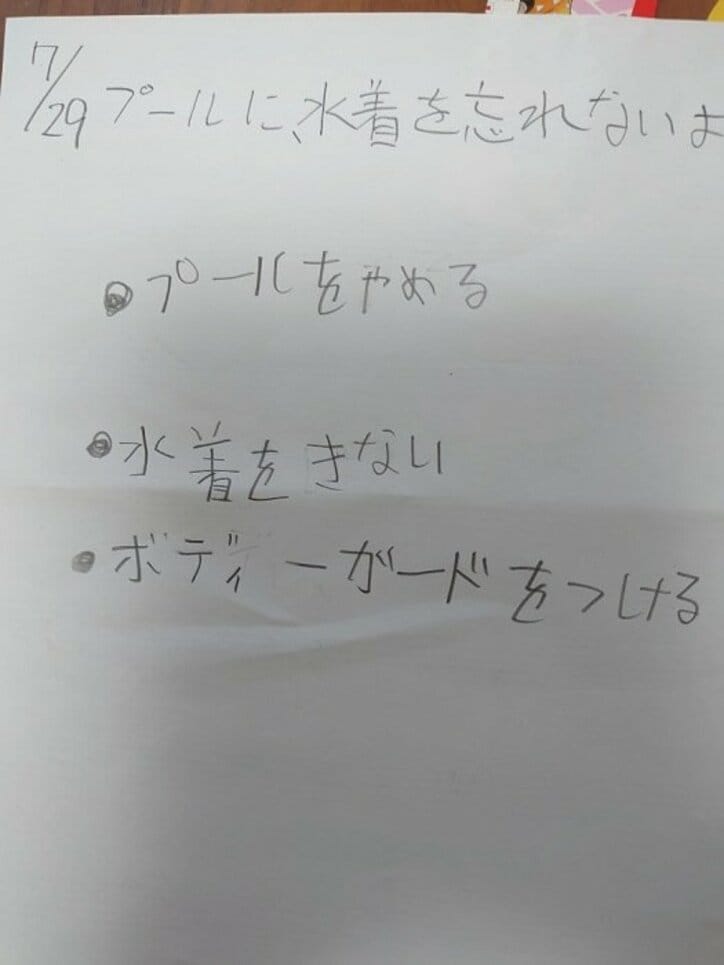 7/29 プールに、水着を忘れないよ
●プールをやめる
●水着をきない
●ボディーガードをつける